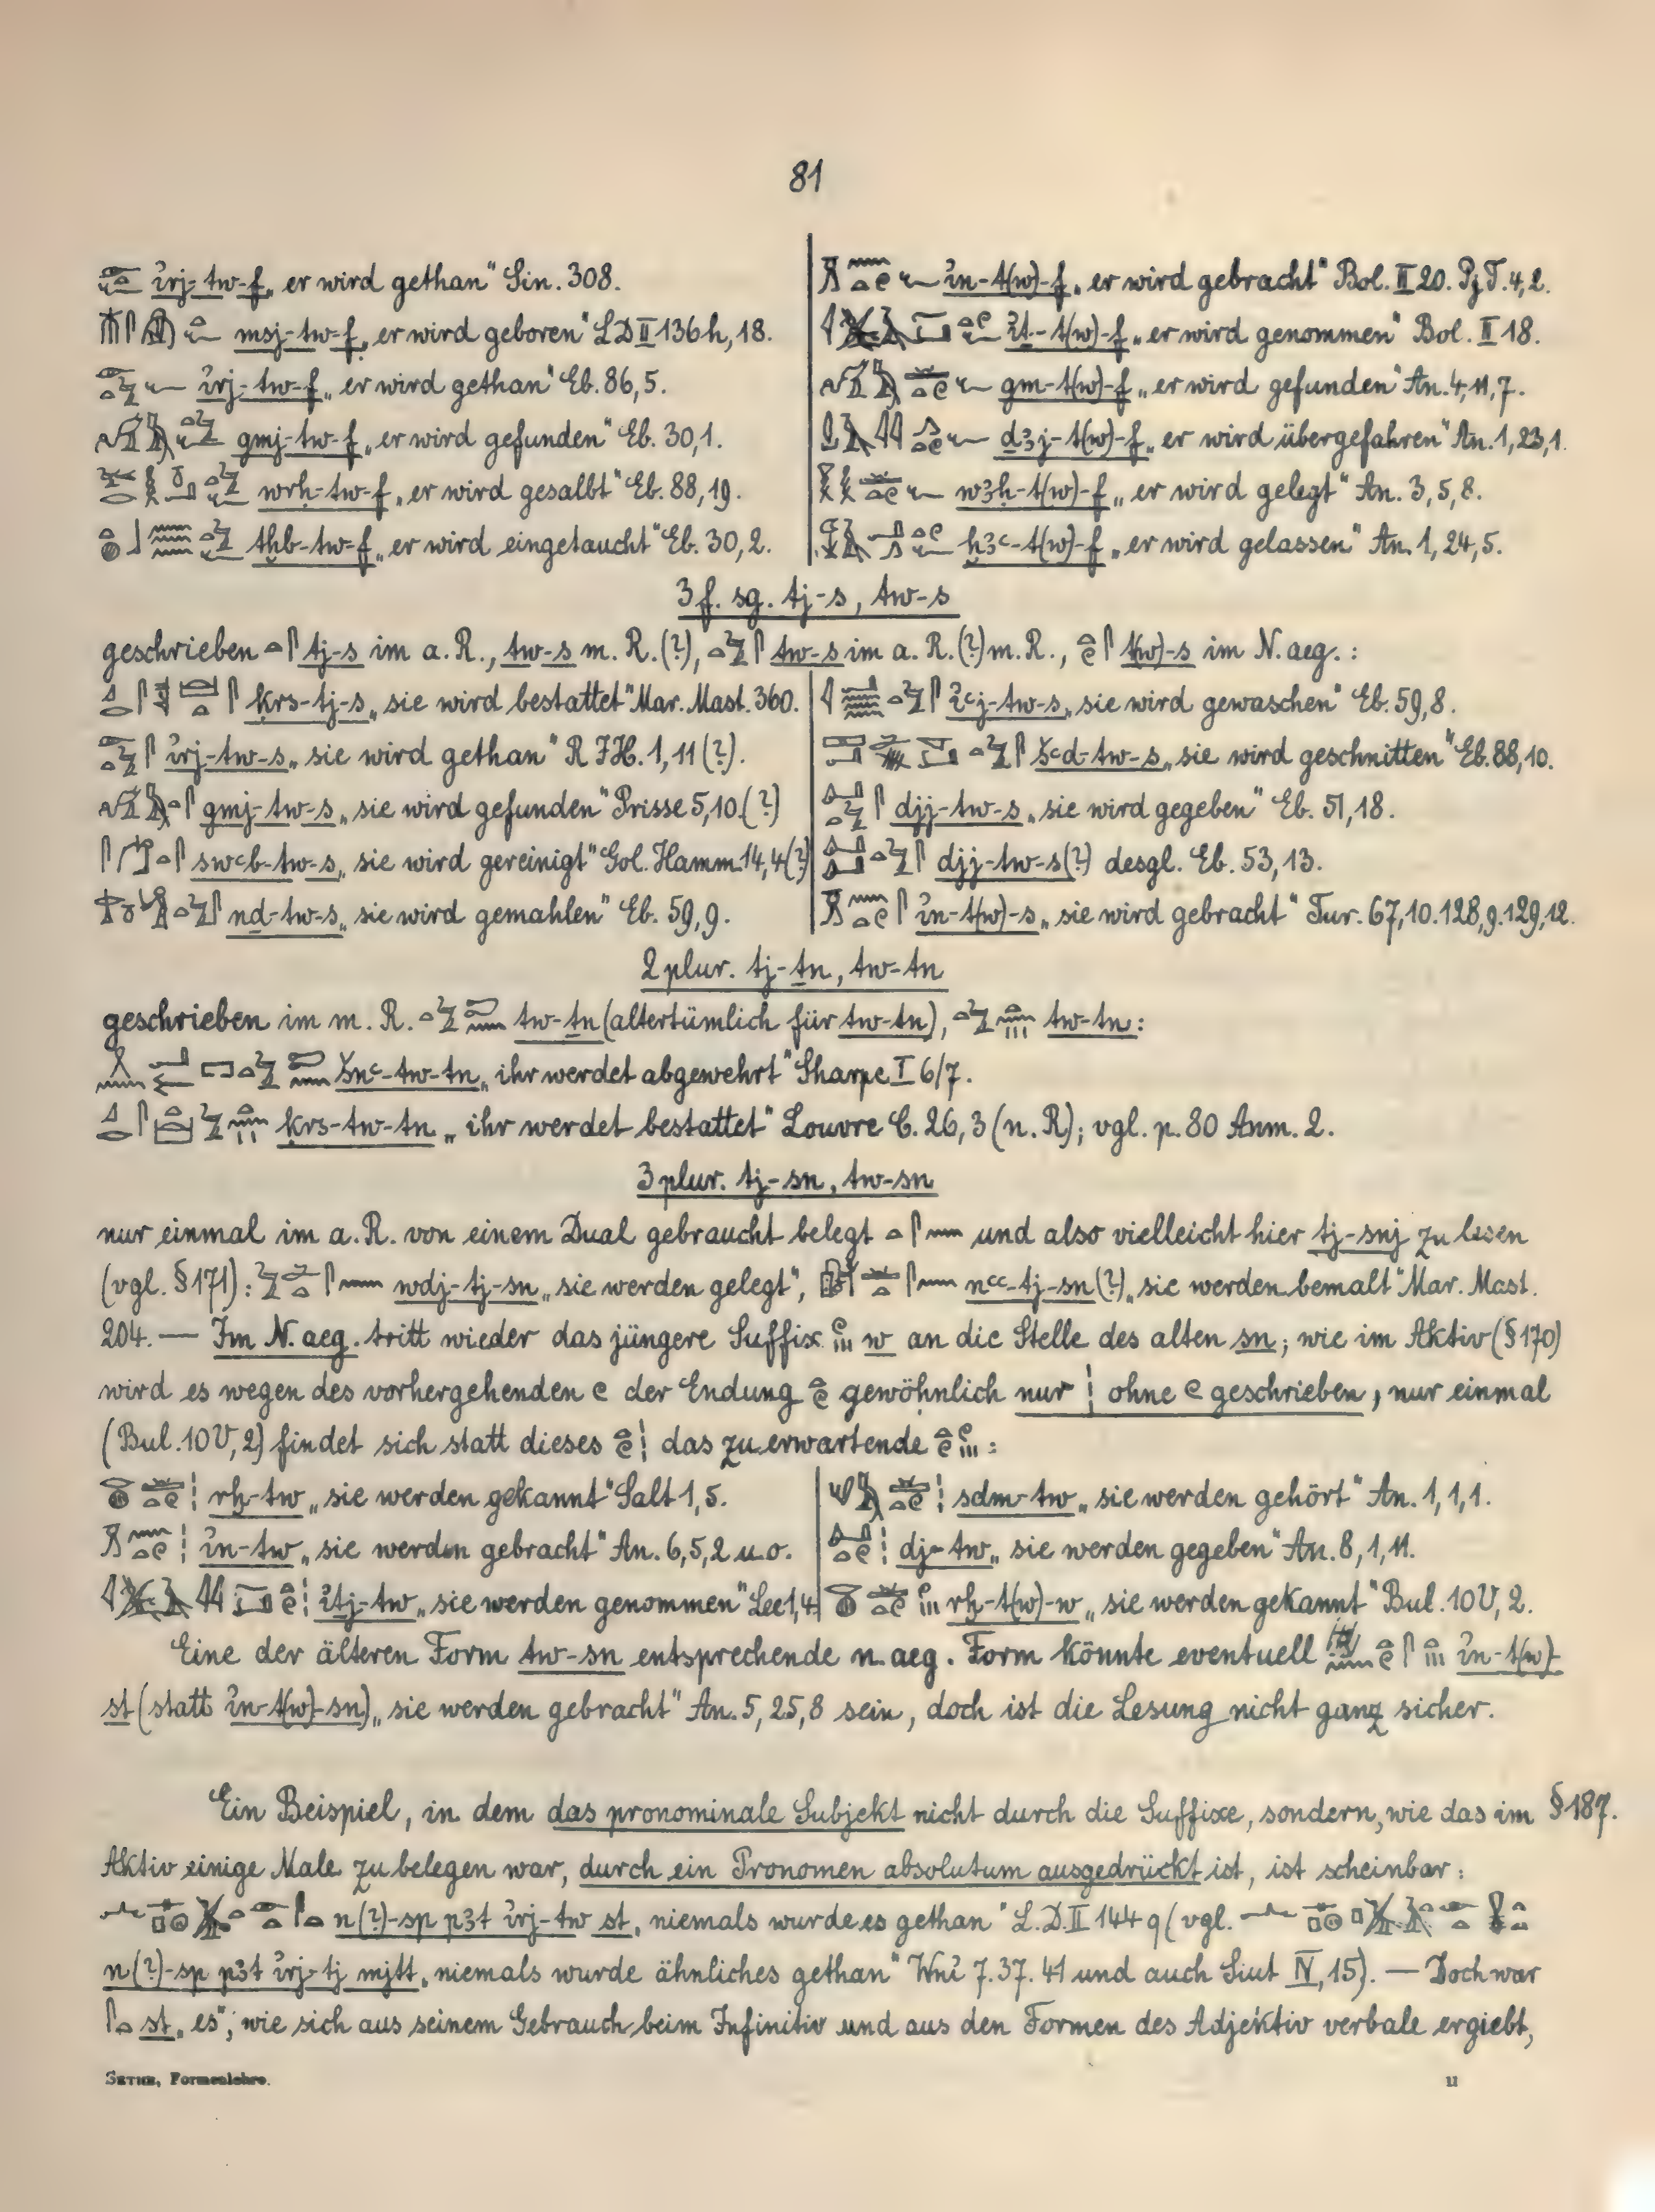 81
irj-tw-f „er wird gethan“ Sin. 308.
msj-tw-f „er wird geboren“ LD II 136h, 18.
irj-tw-f „er wird gethan“ Eb. 86,5.
gmj-tw-f „er wird gefunden“ Eb. 30,1.
wrḥ-tw-f „er wird gesalbt“ Eb. 88,19.
tḫb-tw-f „er wird eingetaucht“ Eb. 30,2.
in-t(w)-f „er wird gebracht“ Bol. II 20. Pj T. 4,2.
iṯ-t(w)-f „er wird genommen“ Bol. II 18.
gm-t(w)-f „er wird gefunden“ An. 4,11,7.
ḏ3j-t(w)-f „er wird übergefahren“ An. 1,23,1.
w3ḥ-t(w)-f „er wird gelegt“ An. 3,5,8.
ḫ3ꜥ-t(w)-f „er wird gelassen“ An. 1,24,5.
3 f. sg. tj-s, tw-s
geschrieben tj-s im a. R., tw-s m. R. (?), tw-s im a. R. (?) m. R., t(w)-s im N. aeg. :
ḳrs-tj-s „sie wird bestattet“ Mar. Mast. 360.
irj-tw-s „sie wird gethan“ R I H. 1,11 (?).
gmj-tw-s „sie wird gefunden“ Prisse 5,10. (?)
swꜥb-tw-s „sie wird gereinigt“ Gol. Hamm. 14,4 (?)
nḏ-tw-s „sie wird gemahlen“ Eb. 59,9.
iꜥj-tw-s „sie wird gewaschen“ Eb. 59,8.
šꜥd-tw-s „sie wird geschnitten“ Eb. 88,10.
djj-tw-s „sie wird gegeben“ Eb. 51,18.
djj-tw-s (?) desgl. Eb. 53,13.
in-t(w)-s „sie wird gebracht“ Tur. 67,10. 128,9. 129,12.
2 plur. tj-ṯn, tw-tn
geschrieben im m. R. tw-ṯn (altertümlich für tw-tn), tw-tn :
šnꜥ-tw-ṯn „ihr werdet abgewehrt“ Sharpe I 6/7.
ḳrs-tw-tn „ihr werdet bestattet“ Louvre C. 26,3 (n. R); vgl. p. 80 Anm. 2.
3 plur. tj-sn, tw-sn
nur einmal im a. R. von einem Dual gebraucht belegt und also vielleicht hier tj-snj zu lesen
(vgl. § 171) : wdj-tj-sn „sie werden gelegt“, nꜥꜥ-tj-sn (?) „sie werden bemalt“ Mar. Mast.
204. — Im N. aeg. tritt wieder das jüngere Suffix w an die Stelle des alten sn; wie im Aktiv (§ 170)
wird es wegen des vorhergehenden der Endung gewöhnlich nur ohne geschrieben, nur einmal
(Bul. 10 V, 2) findet sich statt dieses das zu erwartende :
rḫ-tw „sie werden gekannt“ Salt 1,5.
in-tw „sie werden gebracht“ An. 6,5,2 u. o.
iṯj-tw „sie werden genommen“ Lee 1,4
sdm-tw „sie werden gehört“ An. 1,1,1.
dj-tw „sie werden gegeben“ An. 8,1,11.
rḫ-t(w)-w „sie werden gekannt“ Bul. 10 V, 2.
Eine der älteren Form tw-sn entsprechende n. aeg. Form könnte eventuell in-t(w)-
st (statt in-t(w)-sn) „sie werden gebracht“ An. 5,25,8 sein, doch ist die Lesung nicht ganz sicher.
Ein Beispiel, in dem das pronominale Subjekt nicht durch die Suffixe, sondern, wie das im § 187.
Aktiv einige Male zu belegen war, durch ein Pronomen absolutum ausgedrückt ist, ist scheinbar :
n(?)-sp p3t irj-tw st „niemals wurde es gethan“ L. D. II 144 q (vgl.
n(?)-sp p3t irj-tj mjtt „niemals wurde ähnliches gethan“ Wni 7. 37. 41 und auch Siut IV, 15). — Doch war
st „es“, wie sich aus seinem Gebrauch beim Infinitiv und aus den Formen des Adjektiv verbale ergiebt,
SETHE, Formenlehre. 11